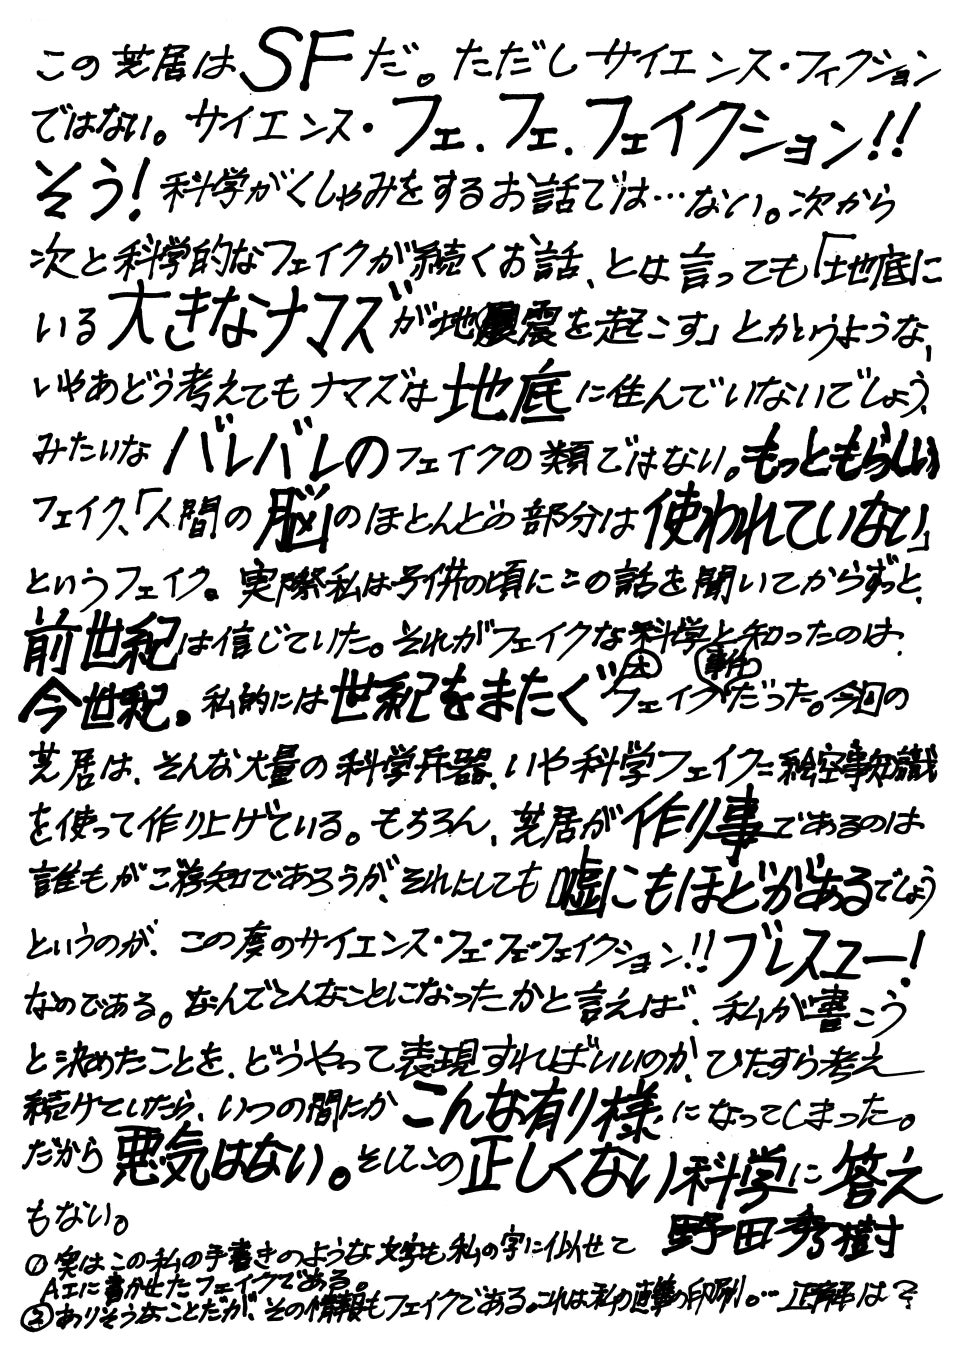 この芝居はSFだ。ただしサイエンス・フィクション
ではない。サイエンス・フェ、フェ、フェイクション!!
そう!科学がくしゃみをするお話では…ない。次から
次と科学的なフェイクが続くお話、とは言っても「地底に
いる大きなナマズが地震を起こす」とかいうような、
いやあどう考えてもナマズは地底に住んでいないでしょう、
みたいなバレバレのフェイクの類ではない。もっともらしい
フェイク、「人間の脳のほとんどの部分は使われていない」
というフェイク。実際私は子供の頃にこの話を聞いてからずっと、
前世紀は信じていた。それがフェイクな科学と知ったのは、
今世紀。私的には世紀をまたぐ大フェイク事件だった。今回の
芝居は、そんな大量の科学兵器、いや科学フェイク=絵空事知識
を使って作り上げている。もちろん、芝居が作り事であるのは
誰もがご存知であろうが、それにしても嘘にもほどがあるでしょう
というのが、この度のサイエンス・フェ・フェ・フェイクション!!ブレスユー!
なのである。なんでこんなことになったかと言えば、私が書こう
と決めたことを、どうやって表現すればいいのか、ひたすら考え
続けていたら、いつの間にかこんな有り様になってしまった。
だから悪気はない。そしてこの正しくない科学に答え
もない。
野田秀樹
① 実はこの私の手書きのような文字も私の字に似せて
AIに書かせたフェイクである。
② ありそうなことだが、その情報もフェイクである。これは私の直筆の印刷。…正解は?